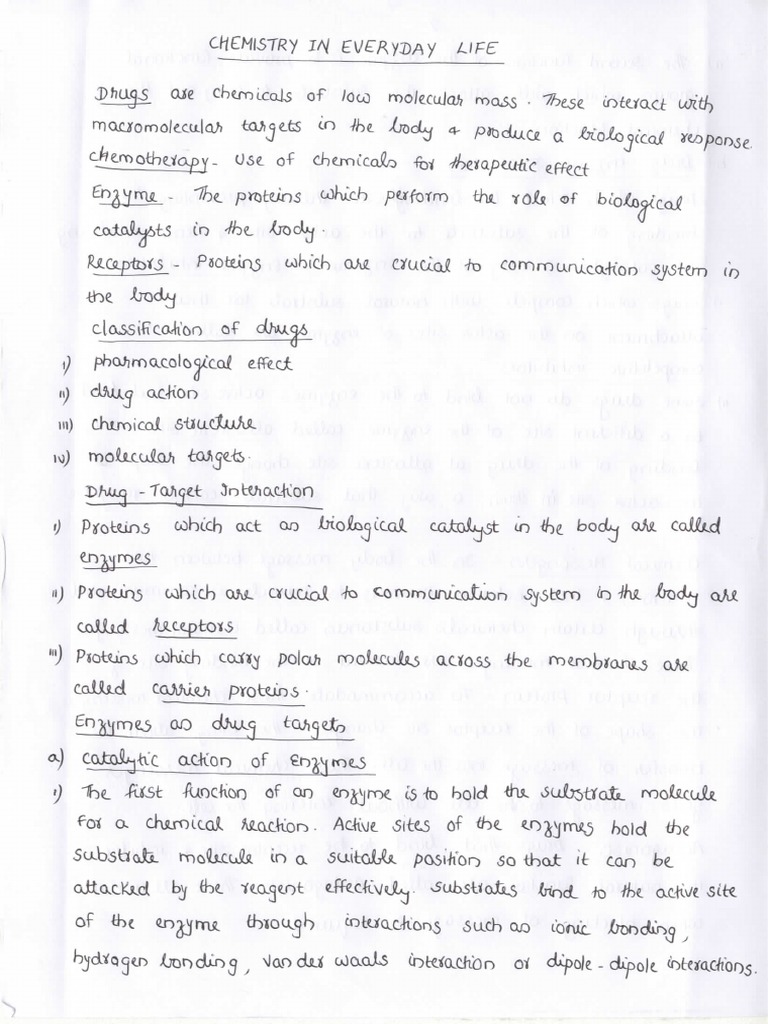 CHEMISTRY IN EVERYDAY LIFE
Drugs are chemicals of low molecular mass. These interact with
macromolecular targets in the body & produce a biological response.
Chemotherapy - Use of chemicals for therapeutic effect
Enzyme - The proteins which perform the role of biological
catalysts in the body.
Receptors - Proteins which are crucial to communication system in
the body
classification of drugs
i) pharmacological effect
ii) drug action
iii) chemical structure
iv) molecular targets.
Drug - Target Interaction
i) Proteins which act as biological catalyst in the body are called
enzymes
ii) Proteins which are crucial to communication system in the body are
called receptors
iii) Proteins which carry polar molecules across the membranes are
called carrier proteins.
Enzymes as drug targets
a) catalytic action of enzymes
i) The first function of an enzyme is to hold the substrate molecule
for a chemical reaction. Active sites of the enzymes hold the
substrate molecule in a suitable position so that it can be
attacked by the reagent effectively. Substrates bind to the active site
of the enzyme through interactions such as ionic bonding,
hydrogen bonding, van der waals interaction or dipole-dipole interactions.